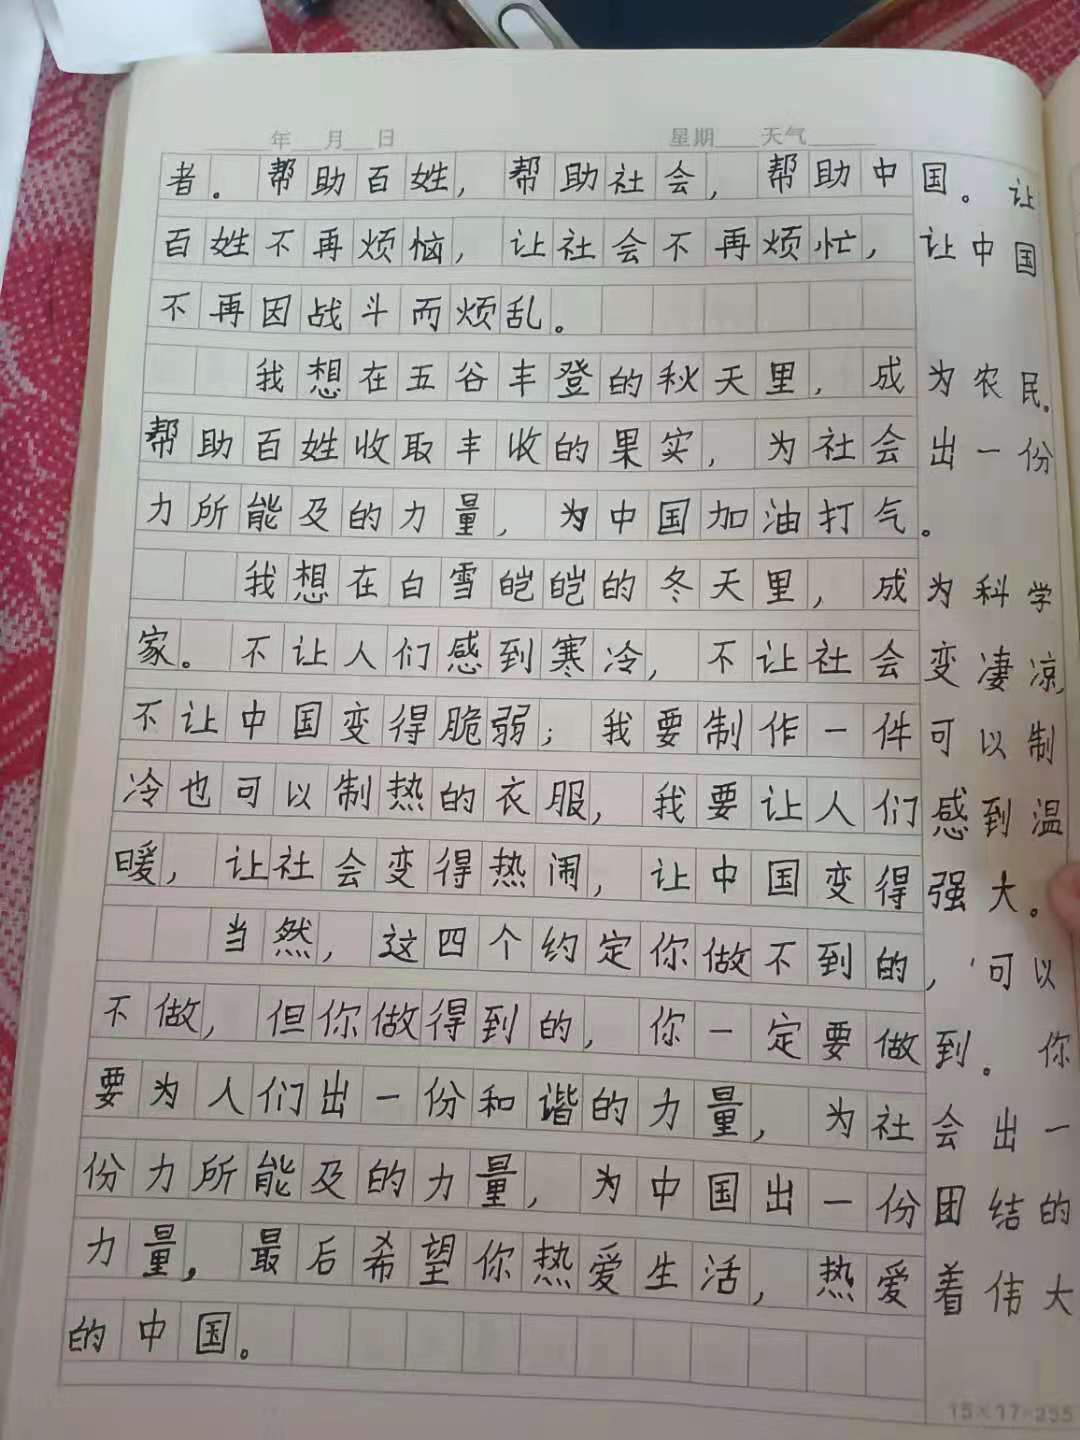 年 月 日 星期 天气
者。帮助百姓，帮助社会，帮助中国。让
百姓不再烦恼，让社会不再烦忙，让中国
不再因战斗而烦乱。
我想在五谷丰登的秋天里，成为农民。
帮助百姓收取丰收的果实，为社会出一份
力所能及的力量，为中国加油打气。
我想在白雪皑皑的冬天里，成为科学
家。不让人们感到寒冷，不让社会变凄凉，
不让中国变得脆弱；我要制作一件可以制
冷也可以制热的衣服，我要让人们感到温
暖，让社会变得热闹，让中国变得强大。
当然，这四个约定你做不到的，可以
不做，但你做得到的，你一定要做到。你
要为人们出一份和谐的力量，为社会出一
份力所能及的力量，为中国出一份团结的
力量，最后希望你热爱生活，热爱着伟大
的中国。
15×17=255